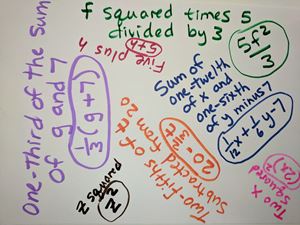 f squared times 5
divided by 3
5f²/3
One-Third of the Sum
of g and 7
⅓(g+7)
Five plus h
5+h
Sum of
one-twelth
of x and
one-sixth
of y minus 7
1/12x + 1/6y-7
Two-fifths of x
subtracted from 20
20 - 2/5x
z squared
z²
Two x
squared
(2x)²